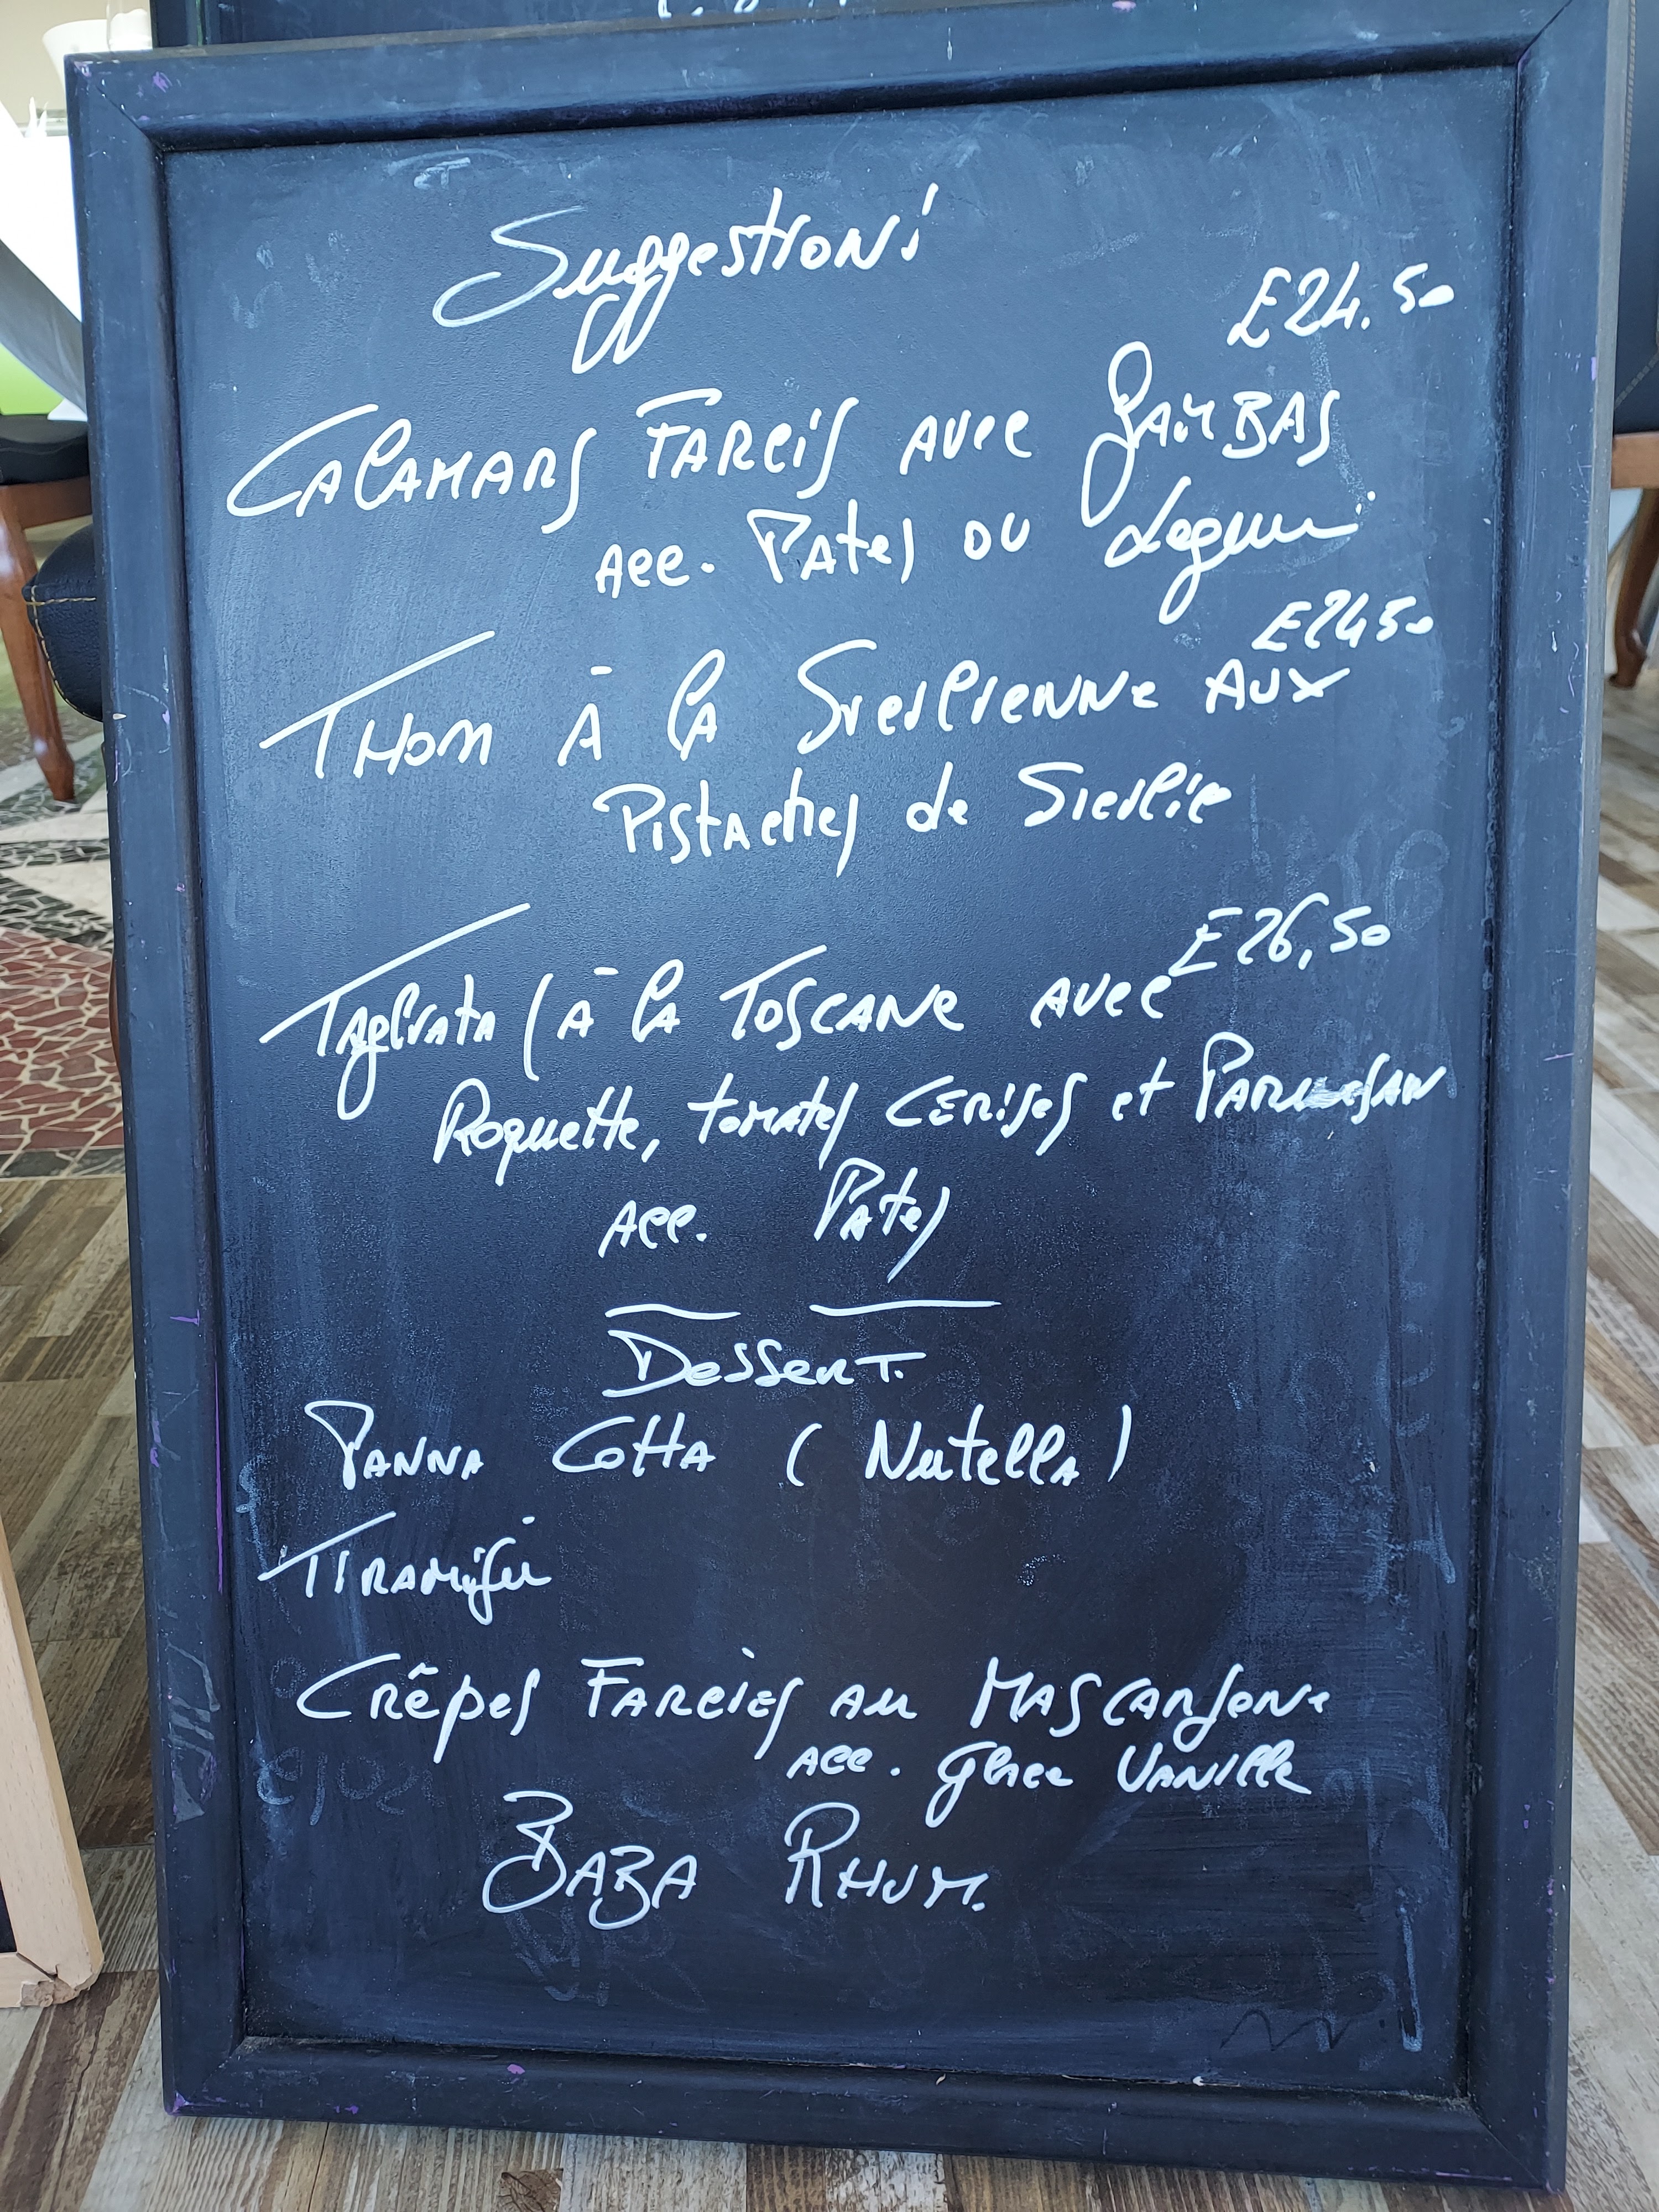 Suggestions
£24.50
Calamars Farcis avec Gambas
acc. Pates ou Legum
£24.50
Thom à la Siecilienne aux
Pistaches de Sicilie
£26,50
Tagliata (à la Toscane avec
Roquette, tomates cerises et Parmesan
acc. Pates
Dessert.
Panna Cotta (Nutella)
Tiramisu
Crêpes Farcies au Mascarpone
acc. glace Vanille
Baba Rhum.